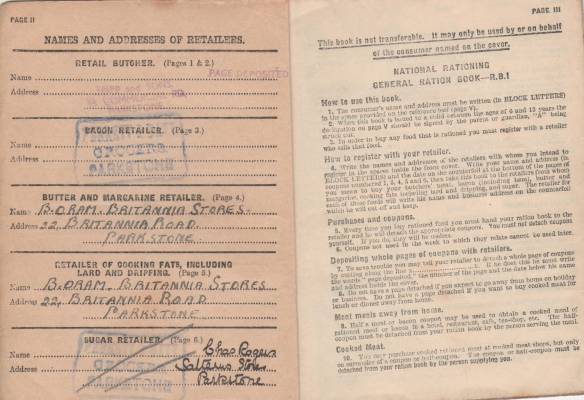 PAGE II
NAMES AND ADDRESSES OF RETAILERS.
RETAIL BUTCHER. (Pages 1 & 2.)
PAGE DEPOSITED
Name
Address
BACON RETAILER. (Page 3.)
Name
Address
GROCERS
PARKSTONE
BUTTER AND MARGARINE RETAILER. (Page 4.)
Name B. ORAM. BRITANNIA STORES.
Address 22, BRITANNIA ROAD.
PARKSTONE
RETAILER OF COOKING FATS, INCLUDING
LARD AND DRIPPING. (Page 5.)
Name B. ORAM, BRITANNIA STORES
Address 22, BRITANNIA ROAD
PARKSTONE
SUGAR RETAILER. (Page 6.)
Name Chas Rogers
Address Stores
Parkstone
PAGE III
This book is not transferable. It may only be used by or on behalf
of the consumer named on the cover.
NATIONAL RATIONING
GENERAL RATION BOOK—R.B.1
How to use this book.
1. The consumer's name and address must be written (in BLOCK LETTERS)
in the space provided on the reference leaf (page V).
2. When this book is issued to a child between the ages of 6 and 15 years the
declaration on page V should be signed by the parent or guardian, "A" being
struck out.
3. In order to buy any food that is rationed you must register with a retailer
who sells that food.
How to register with your retailer.
4. Write the names and addresses of the retailers with whom you intend to
register in the spaces inside the front cover. Write your name and address (in
BLOCK LETTERS) and the date on the counterfoil at the bottom of the pages of
coupons numbered 1, 3, 4, 5 and 6, then take this book to the retailers from whom
you mean to buy your butchers' meat, bacon (including ham), butter and
margarine, cooking fats including lard and dripping, and sugar. The retailer for
each of these foods will write his name and business address on the counterfoil
which he will cut off and keep.
Purchases and coupons.
5. Every time you buy rationed food you must hand your ration book to the
retailer and he will detach the appropriate coupons. You must not detach coupons
yourself. If you do, they will be useless.
6. Coupons not used in the week to which they relate cannot be used later.
Depositing whole pages of coupons with retailers.
7. To save trouble you may tell your retailer to detach a whole page of coupons
by cutting along the line x If he does this he must write
the words "page deposited," the number of the page and the date below his name
and address inside the cover.
8. Do not have a page detached if you expect to go away from home on holiday
or business. Do not have a page detached if you want to use cooked meat for
lunch or dinner away from home.
Meat meals away from home.
9. Half a meat or bacon coupon may be used to obtain a cooked meal of
rationed meat or bacon in a hotel, restaurant, café, tea-shop, etc. The half-
coupon must be detached from your ration book by the person serving the meal.
Cooked Meat.
10. You may purchase cooked rationed meat at cooked meat shops, but only
on surrender of a coupon or half-coupon. The coupon or half-coupon must be
detached from your ration book by the person supplying you.